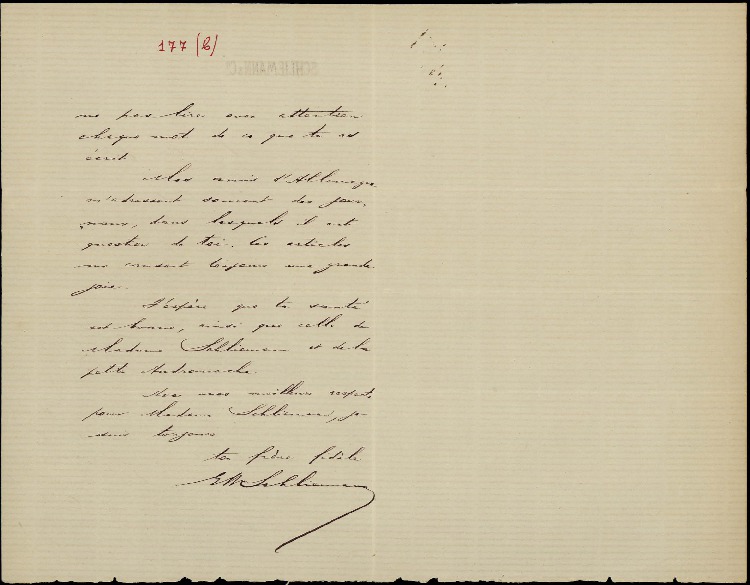 177 (b)
SCHLIEMANN & Co
ne pas lire avec attention
chaque mot de ce que tu as
écrit.
Mes amis d'Allemagne
m'adressent souvent des jour-
naux, dans lesquels il est
question de toi. Ces articles
me causent toujours une grande
joie.
J'espère que ta santé
est bonne, ainsi que celle de
Madame Schliemann et de la
petite Andromache.
Avec mes meilleurs respects
pour Madame Schliemann, je
suis toujours
ton frère fidèle
Schliemann